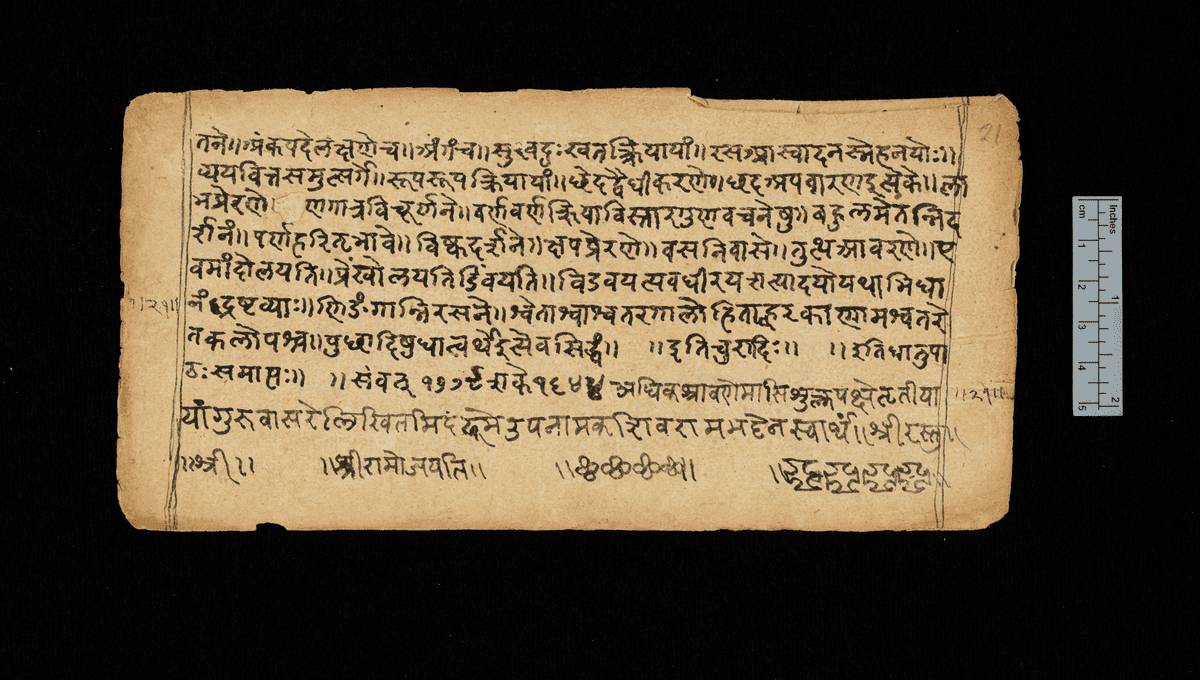 तने॥अंकपदेलक्षणेच॥अंगच॥सुखदुःखतत्क्रियायां॥रसआस्वादनस्नेहनयोः॥
व्ययवित्तसमुत्सर्गे॥रूपरूपक्रियायां॥छेदद्वैधीकरणे॥छदअपवारणइत्येके॥ला
भप्रेरणे॥ व्रणगात्रविचूर्णने॥वर्णवर्णक्रियाविस्तारगुणवचनेषु॥बहुलमेतन्निद
र्शनं॥पर्णहरितभावे॥विष्कदर्शने॥क्षपप्रेरणे॥वसनिवासे॥तुत्थआवरणे॥ए
वमांदोलयति॥प्रेंखोलयतिविडंबयति॥अवधीरयइत्यादयोयथाभिधा
नंद्रष्टव्याः॥णिङंगान्निरसने॥श्वेताश्वाश्वतरगालोडिताह्वरकाणामश्वतरे
तकलोपश्च॥पुछादिषुधात्वर्थेइत्येवसिद्धं॥ ॥इतिचुरादिः॥ ॥इतिधातुपा
ठःसमाप्तः॥ ॥संवत् १७७९शके१६४४ अधिकश्रावणेमासिशुक्लपक्षेतृतीया
यांगुरुवासरेलिखितमिदं उपनामक रामभट्टेनस्वार्थं॥श्रीरस्तु॥
॥श्री॥ ॥श्रीरामोजयति॥ ॥छ॥छ॥छ॥छ॥
॥२१॥
॥२१॥
21
Inches
cm
1
2
3
4
5
1
2